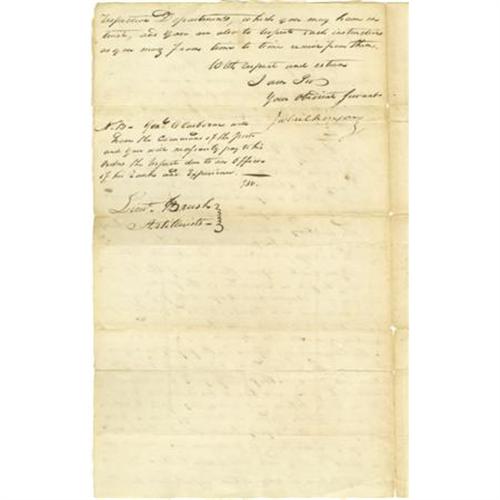 Inspection Departments, which you may have in
trust, and you are also to respect such instructions
as you may from time to time receive from them.
With respect and esteem
I am Sir
Your obedient Servant
Ja Wilkinson
N.B. Genl. Claiborne will
have the Command of the post
and you will necessarily pay to his
Orders the respect due to an Officer
of his Rank and Experience.
J.W.
Lieut. Brush
Artillerists